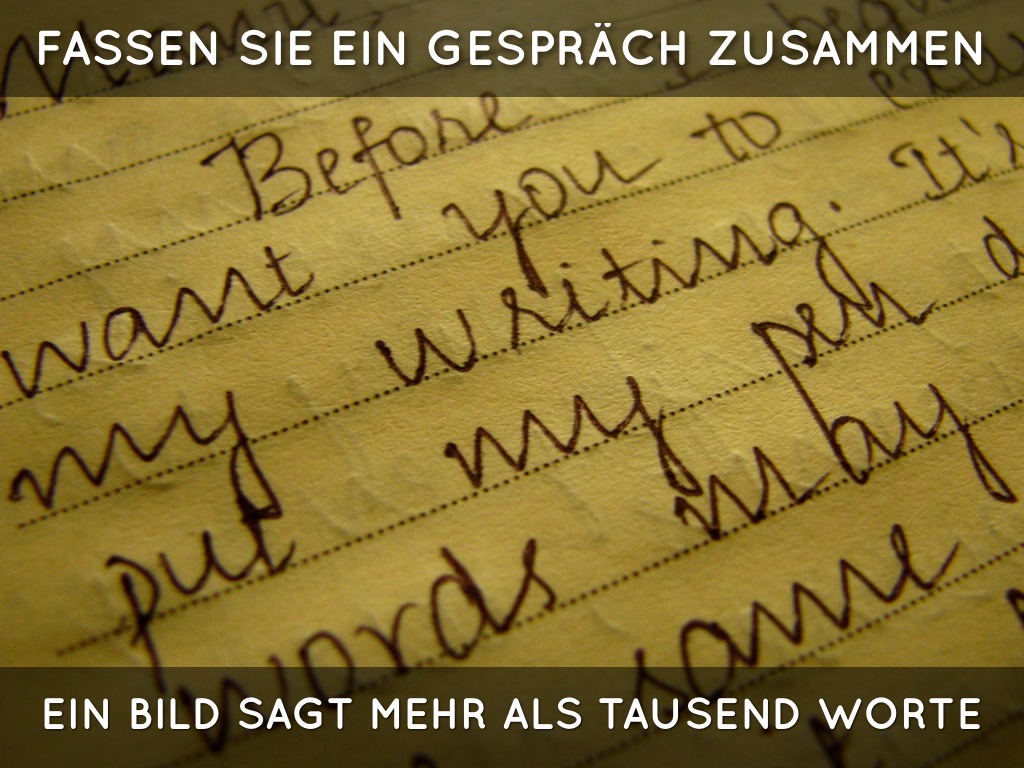 FASSEN SIE EIN GESPRÄCH ZUSAMMEN
Before I
want you to
my writing. It's
put my pen d
words may
same
EIN BILD SAGT MEHR ALS TAUSEND WORTE